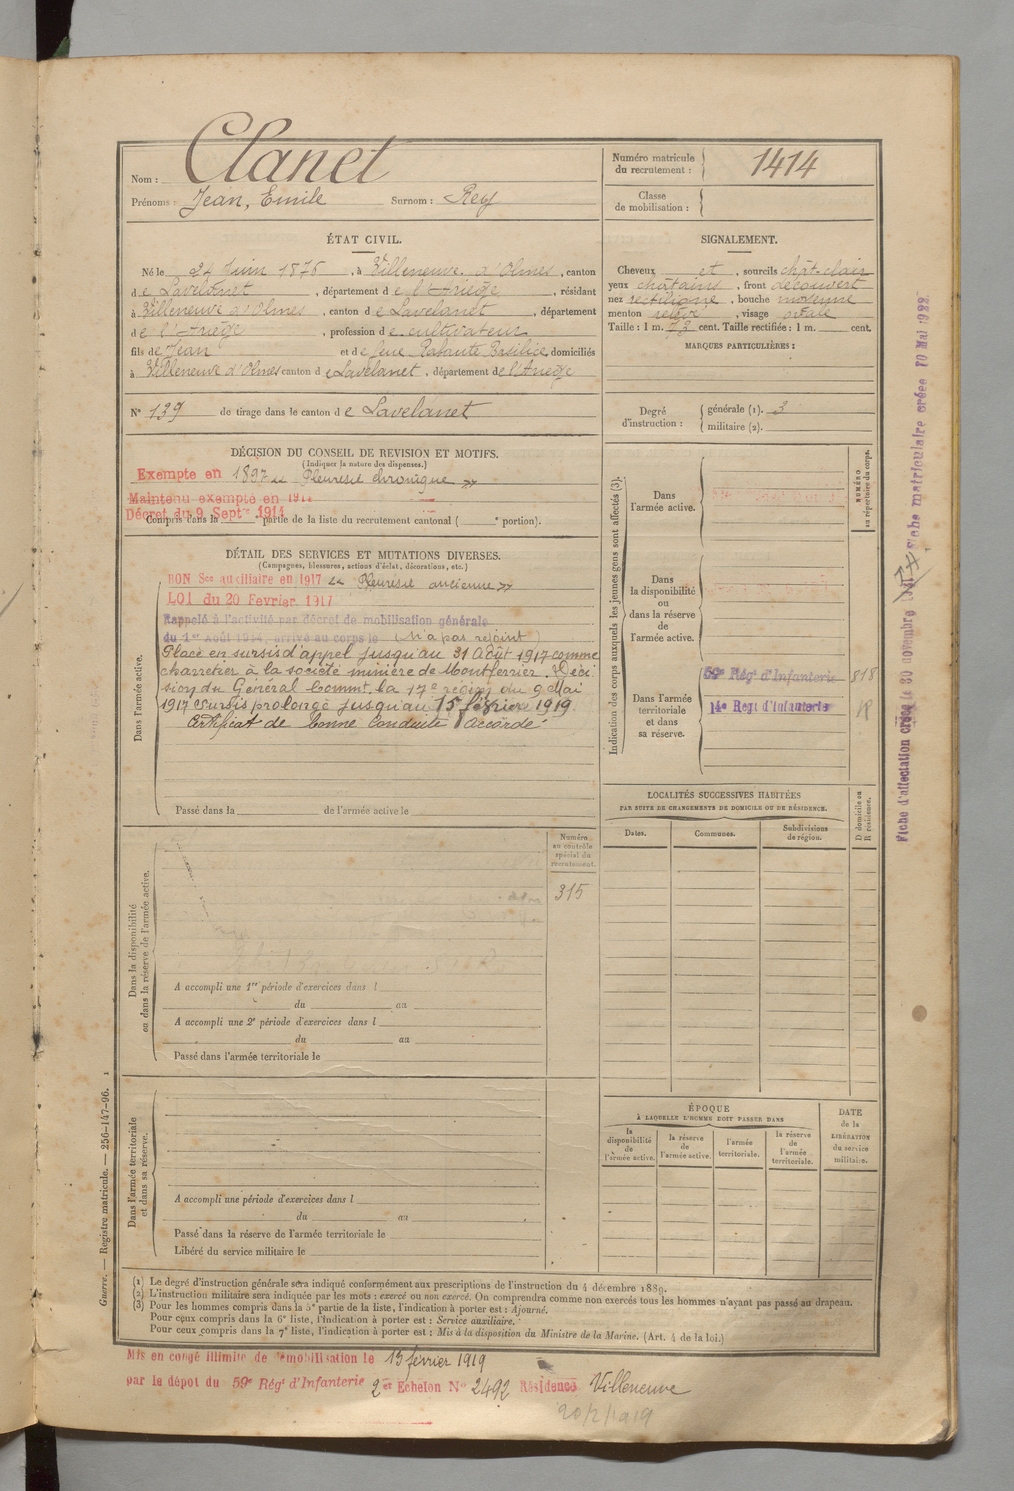 Nom : Clanet
Prénoms : Jean, Emile Surnom : Rey
Numéro matricule du recrutement : 1414
Classe de mobilisation :
ÉTAT CIVIL.
Né le 24 Juin 1876, à Villeneuve d'Olmes, canton
de Lavelanet, département de l'Ariège, résidant
à Villeneuve d'Olmes, canton de Lavelanet, département
de l'Ariège, profession de cultivateur
fils de Jean et de feue Rabaute Basilice domiciliés
à Villeneuve d'Olmes canton de Lavelanet, département de l'Ariège
N° 139 de tirage dans le canton de Lavelanet
SIGNALEMENT.
Cheveux et, sourcils chât-clair
yeux châtains, front découvert
nez rectiligne, bouche moyenne
menton relevé, visage ovale
Taille : 1 m. 73 cent. Taille rectifiée : 1 m. cent.
MARQUES PARTICULIÈRES :
Degré d'instruction : générale (1). 3
militaire (2).
DÉCISION DU CONSEIL DE REVISION ET MOTIFS.
(Indiquer la nature des dispenses.)
Exempté en 1897 « Pleurésie chronique »
Maintenu exempté en 191
Décret du 9 Sept. 1914
Compris dans la partie de la liste du recrutement cantonal ( portion).
DÉTAIL DES SERVICES ET MUTATIONS DIVERSES.
(Campagnes, blessures, actions d'éclat, décorations, etc.)
Dans l'armée active.
BON Sce auxiliaire en 1917 « Pleurésie ancienne »
LOI du 20 Février 1917
Rappelé à l'activité par décret de mobilisation générale
du 1er Août 1914, arrivé au corps le (n'a pas rejoint)
Placé en sursis d'appel jusqu'au 31 août 1917 comme
charretier à la société minière de Montferrier. Déci
sion du Général Commt. la 17e région du 9 Mai
1917 Sursis prolongé jusqu'au 15 février 1919
Certificat de bonne Conduite Accordé
Passé dans la de l'armée active le
Indication des corps auxquels les jeunes gens sont affectés (3).
NUMÉRO au répertoire du corps.
Dans l'armée active.
Dans la disponibilité ou dans la réserve de l'armée active.
Dans l'armée territoriale et dans sa réserve.
59e Régt d'Infanterie 818
14e Regt d'Infanterie R
LOCALITÉS SUCCESSIVES HABITÉES
PAR SUITE DE CHANGEMENTS DE DOMICILE OU DE RÉSIDENCE.
Dates. Communes. Subdivisions de région. D domicile ou R résidence.
Dans la disponibilité ou dans la réserve de l'armée active.
Numéro au contrôle spécial du recrutement.
315
A accompli une 1re période d'exercices dans l
du au
A accompli une 2e période d'exercices dans l
du au
Passé dans l'armée territoriale le
Dans l'armée territoriale et dans sa réserve.
A accompli une période d'exercices dans l
du au
Passé dans la réserve de l'armée territoriale le
Libéré du service militaire le
ÉPOQUE
À LAQUELLE L'HOMME DOIT PASSER DANS
la disponibilité de l'armée active. la réserve de l'armée active. l'armée territoriale. la réserve de l'armée territoriale.
DATE de la LIBÉRATION du service militaire.
(1) Le degré d'instruction générale sera indiqué conformément aux prescriptions de l'instruction du 4 décembre 1889.
(2) L'instruction militaire sera indiquée par les mots : exercé ou non exercé. On comprendra comme non exercés tous les hommes n'ayant pas passé au drapeau.
(3) Pour les hommes compris dans la 5e partie de la liste, l'indication à porter est : Ajourné.
Pour ceux compris dans la 6e liste, l'indication à porter est : Service auxiliaire.
Pour ceux compris dans la 7e liste, l'indication à porter est : Mis à la disposition du Ministre de la Marine. (Art. 4 de la loi.)
Mis en congé illimité de démobilisation le 13 février 1919
par le dépot du 59e Régt d'Infanterie 2e Echelon N° 2492 Résidence Villeneuve
20/2/1919
Guerre. — Registre matricule. — 256-147-96.
Fiche d'affectation créée le 30 novembre
Fiche matriculaire créée 10 Mai